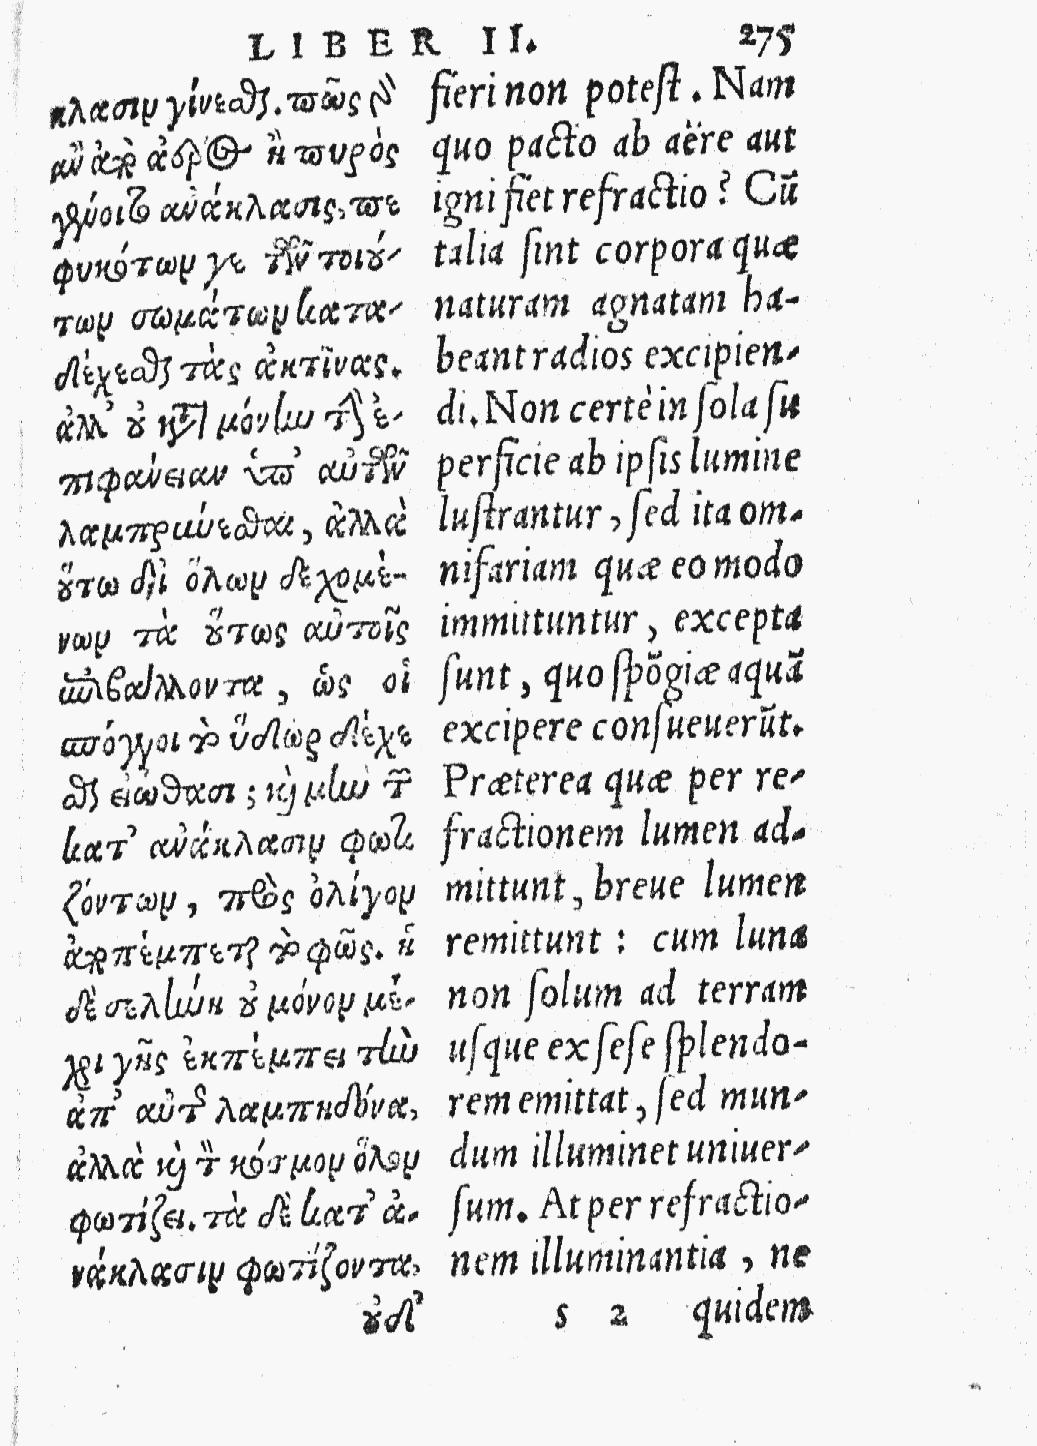 LIBER II. 275
κλασιν γίνεσθαι. πῶς γὰρ
ἂν ἀπὸ ἀέρος ἢ πυρὸς
γένοιτο ἀνάκλασις, πε
φυκότων γε τῶν τοιού-
των σωμάτων κατα-
δέχεσθαι τὰς ἀκτῖνας.
ἀλλ' οὐ κατὰ μόνην τὴν ἐ-
πιφάνειαν ὑπ' αὐτῶν
λαμπρύνεσθαι, ἀλλὰ
οὕτω δι' ὅλων δεχομέ-
νων τὰ οὕτως αὐτοῖς
ἐπιβάλλοντα, ὡς οἱ
σπόγγοι τὸ ὕδωρ δέχε
σθαι εἰώθασι; καὶ μὴν τῶν
κατ' ἀνάκλασιν φωτι
ζόντων, πρὸς ὀλίγον
ἀποπέμπεται τὸ φῶς. ἡ
δὲ σελήνη οὐ μόνον μέ-
χρι γῆς ἐκπέμπει τὴν
ἀπ' αὐτῆς λαμπηδόνα,
ἀλλὰ καὶ τὸν κόσμον ὅλον
φωτίζει. τὰ δὲ κατ' ἀ-
νάκλασιν φωτίζοντα,
οὐδ'
fieri non potest. Nam
quo pacto ab aëre aut
igni fiet refractio? Cũ
talia sint corpora quæ
naturam agnatam ha-
beant radios excipien-
di. Non certè in sola su
perficie ab ipsis lumine
lustrantur, sed ita om-
nifariam quæ eo modo
immittuntur, excepta
sunt, quo spõgiæ aquã
excipere consueuerũt.
Præterea quæ per re-
fractionem lumen ad-
mittunt, breue lumen
remittunt: cum luna
non solum ad terram
usque ex sese splendo-
rem emittat, sed mun-
dum illuminet uniuer-
sum. At per refractio-
nem illuminantia, ne
s 2 quidem